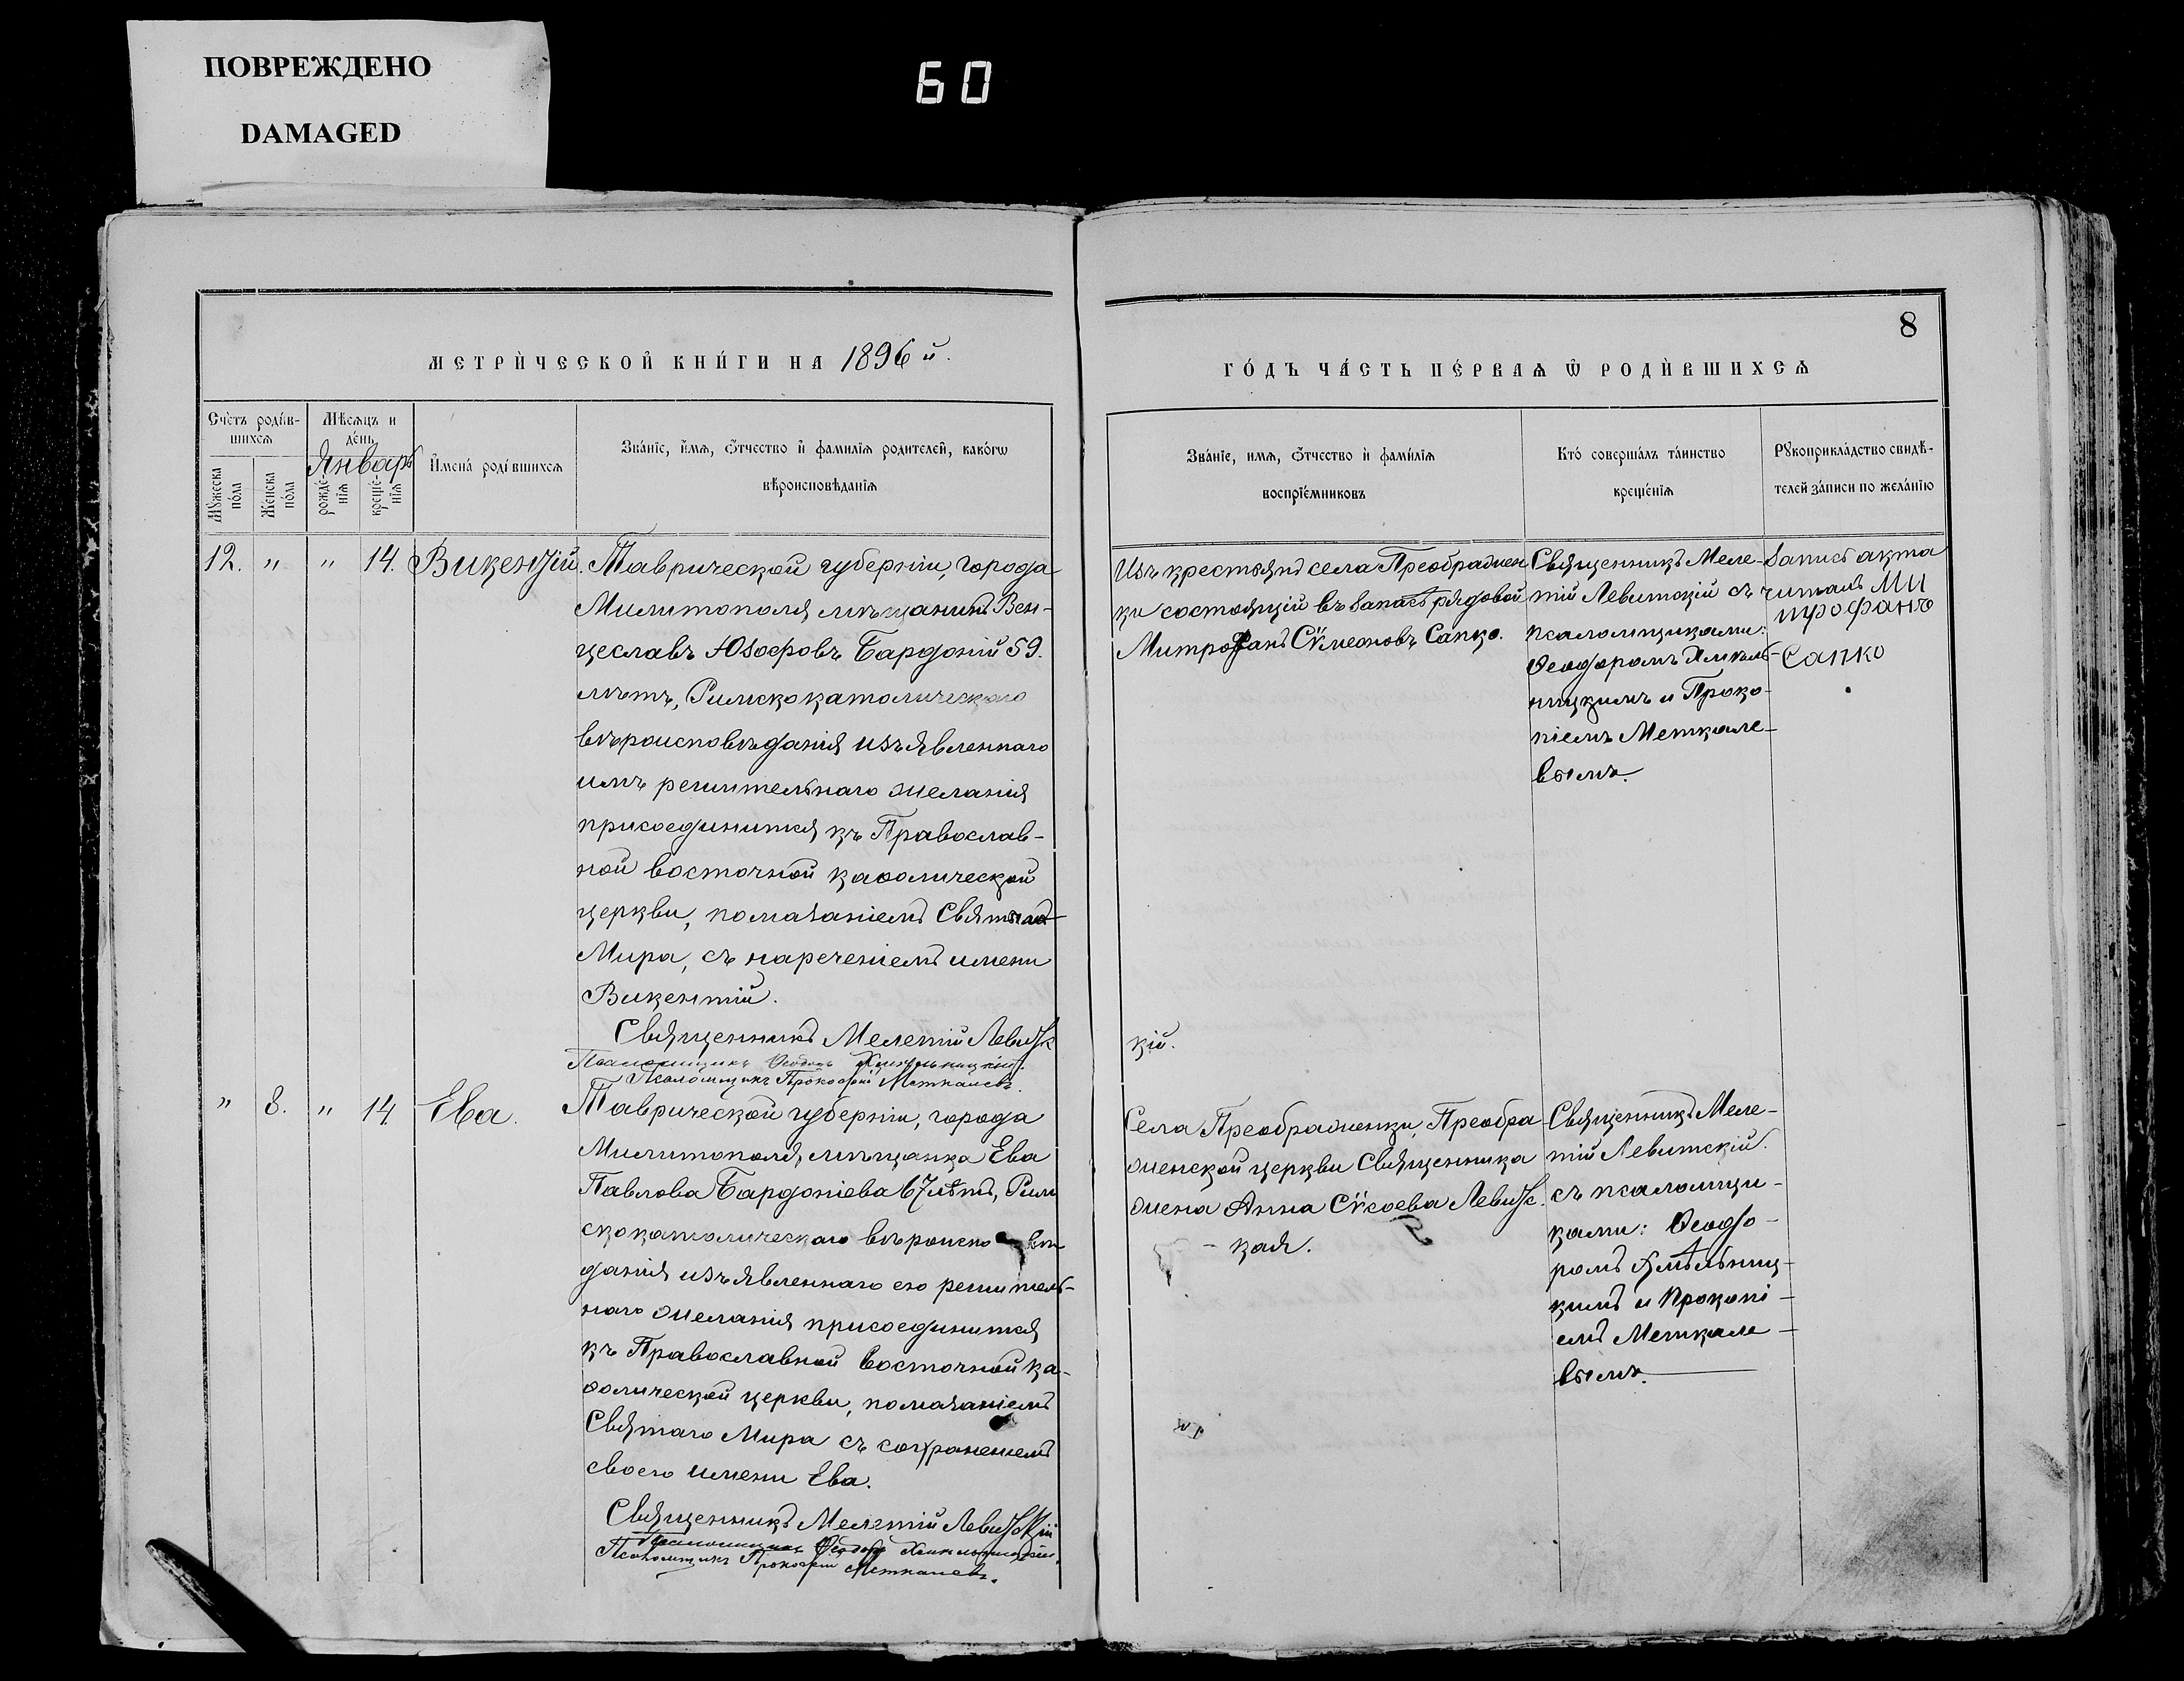 ПОВРЕЖДЕНО
DAMAGED
60
8
МЕТРИ́ЧЕСКОЙ КНИ́ГИ НА 1896 й.
ГО́ДЪ ЧА́СТЬ ПЕ́РВАѦ Ѿ РОДИ́ВШИХСѦ
Сче́тъ роди́в-
шихсѧ
Мѣ́сѧцъ и
де́нь
Январь
Мꙋ́жеска
по́ла
Же́нска
по́ла
рожде́-
нїѧ
креще́-
нїѧ
Имена́ роди́вшихсѧ
Зва́нїе, и́мѧ, ѻ́тчество и фами́лїѧ родителей, како́гѡ
вѣроисповѣ́данїѧ
Зва́нїе, имѧ, ѻ́тчество и фами́лїѧ
воспрїе́мниковъ
Кто́ соверша́лъ та́инство
креще́нїѧ
Рꙋкоприкла́дство свидѣ́-
телей за́писи по жела́нїю
12. " " 14. Викентій.
Таврической губерніи, города
Милитополя мѣщанинъ Вен-
цеславъ Юзефовъ Бардоній 59.
лѣтъ, Римско католическаго
вѣроисповѣданія изъявленнаго
имъ решительнаго желанія
присоединится къ Православ-
ной восточной каѳолической
церкви, помазаніемъ Святымъ
Мира, съ нареченіемъ имени
Викентій.
Священникъ Мелетій Левитс
кій.
Псаломщикъ Ѳеодоръ Хмѣльницкій.
Псаломщикъ Прокофій Меткалевъ.
Изъ крестьянъ села Преображен
ки состоящій въ запасѣ рядовой
Митрофанъ Сѵмеоновъ Сапко.
Священникъ Меле-
тій Левитскій съ
псаломщиками:
Ѳеодоромъ Хмѣль-
ницкимъ и Проко-
піемъ Меткале-
вымъ.
Запись акта
читалъ МИ
трофанъ
Сапко
" 8. " 14. Ева.
Таврической губерніи, города
Милитополя, мѣщанка Ева
Павлова Бардоніева 67 лѣтъ, Рим
скокатолическаго вѣроиспо вѣ
данія изъявленнаго ею решитель-
наго желанія присоединится
къ Православной восточной ка-
ѳолической церкви, помазаніемъ
Святаго Мира съ сохраненіемъ
своего имени Ева.
Священникъ Мелетій Левитскій
Псаломщикъ Ѳеодоръ Хмѣльницкій.
Псаломщикъ Прокофій Меткалевъ.
Села Преображенки, Преобра
женской церкви Священника
жена Анна Сѵсоева Левитс.
- кая.
Священникъ Меле-
тій Левитскій.
съ псаломщи-
ками: Ѳеодо-
ромъ Хмѣльниц-
кимъ и Прокопі-
емъ Меткале-
вымъ.